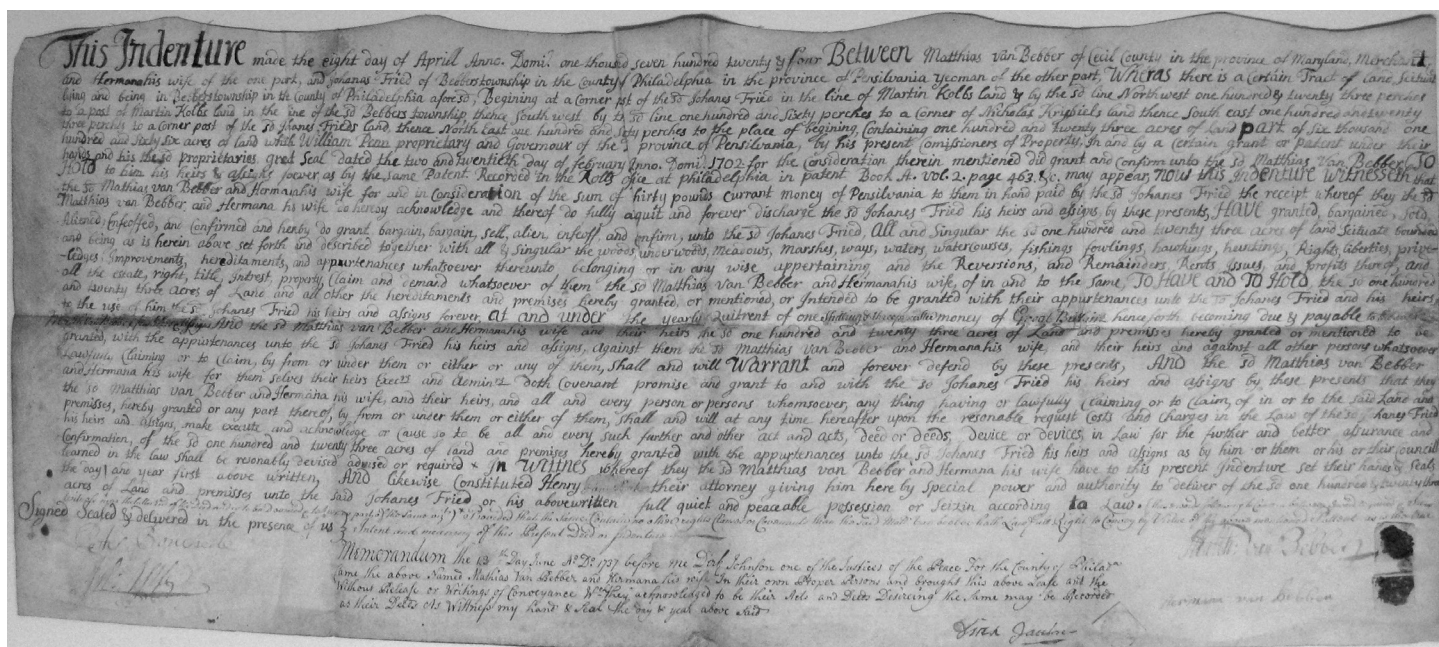 This Indenture made the eight day of Aprill Anno. Domi. one thousd seven hundred twenty & four Between Matthias van Bebber of Cecil County in the province of Maryland, Merchant
and Hermana his wife of the one part, and Johanes Fried of Bebberstownship in the County of Philadelphia in the province of Pensilvania yeoman of the other part, Wheras there is a Certain Tract of land Scituate
lying and being in Bebberstownship in the County of Philadelphia afores̅d, Begining at a Corner pst of the s̅d Johanes Fried in the line of Martin Kolbs land & by the s̅d line Northwest one hundred & twenty three perches
to a post of Martin Kolbs land in the line of the s̅d Bebbers township, thence South west by th s̅d line one hundred and Sixty perches to a Corner of Nicholas land thence South east one hundred and twenty
three perches to a Corner post of the s̅d Jhanes Frieds land, thence North East one hundred and Sixty perches to the place of begining, Containing one hundred and twenty three acres of land part of Six thousand one
hundred and Sixty Six acres of land which William Penn proprietary and Governour of the s̅ province of Pensilvania, by his present Comissioners of Property, In and by a Certain grant or patent under their
hands and his the s̅d proprietaries great Seal dated the two and twentieth day of february Anno. Domi. 1702 for the Consideration therein mentioned did grant and Confirm unto the s̅d Matthias van Bebber TO
HOLD to him his heirs & assigns forever as by the same Patent. Recorded in the Rolls ofice at philadelphia in patent Book A. vol. 2. page 463. &c. may appear, now this Indenture witnesseth that
the s̅d Mathias van Bebber and Hermanh his wife for and in Consideration of the sum of hirty pounds Currant money of Pensilvania to them in hand paid by the s̅d Johanes Fried the receipt whereof they the s̅d
Matthias van Bebber and Hermana his wife do henby acknowledge and thereof do fully aquit and forever discharge the s̅d Johanes Fried his heirs and assigns, by these presents, HAVE granted, bargained, sold,
Aliened, Enfeoffed, and Confirmed and herby do grant, bargain, bargain, sell, alien enfeoff, and Confirm, unto the s̅d Johanes Fried, All and Singular the s̅d one hundred and twenty three acres of land Scituate bounded
and being as is herein above set forth and described together with all & Singular the woods, underwoods, Meadows, Marshes, ways, waters, watercourses, fishings fowlings, hawkings, huntings, Rights, liberties, prive-
-ledges, Improvements, hereditaments, and appurtenances whatsoever thereunto belonging or in any wise appertaining and the Reversions, and Remainders, Rents Issues, and profits therof, and
all the estate, right, title, Intrest, property, Claim and demand whatsoever of them the s̅d Matthias van Bebber and Hermana his wife, of in and to the same, TO HAVE and TO HOLD, the s̅d one hundred
and twenty three acres of Land and all other the hereditaments and premises hereby granted, or mentioned, or Intended to be granted with their appurtenances unto the s̅d Johanes Fried and his heirs,
to the use of him the s̅d Johanes Fried his heirs and assigns forever, at and under the yearly Quitrent of one money of Great Brittain henceforth becoming due & payable to
And the s̅d Matthias van Bebber and Hermana his wife and their heirs the s̅d one hundred and twenty three acres of Land and premises hereby granted or mentioned to be
granted, with the appurtenances unto the s̅d Johanes Fried his heirs and assigns, against them the s̅d Matthias van Bebber and Hermana his wife, and their heirs and against all other persons whatsoever
Lawfully Claiming or to Claim, by from or under them or either or any of them, Shall and will Warrant and forever defend by these presents, And the s̅d Matthias van Bebber
and Hermana his wife for them selves their heirs Execrs and Adminrs doth Covenant promise and grant to and with the s̅d Johanes Fried his heirs and assigns by these presents that they
the s̅d Mathias van Bebber and Hermana his wife, and their heirs, and all and every person or persons whomsoever, any thing having or lawfully Claiming or to Claim, of in or to the said Land and
premisses, hereby granted or any part thereof, by from or under them or either of them, Shall and will at any time hereafter upon the resonable request Costs and Charges in the Law of the s̅d Jhanes Fried
his heirs and assigns, make execute and acknowledge or Cause so to be all and every such further and other act and acts, deed or deeds, device or devices, in Law for the further and better assurance and
Confirmation, of the s̅d one hundred and twenty three acres of land and premises hereby granted with the appurtenances unto the s̅d Johanes Fried his heirs and assigns as by him or them or his or their Council
learned in the law shall be resonably devised advised or required & In Wittnes whereof they the s̅d Matthias van Bebber and Hermana his wife have to this present Indenture set their hands & Seals
the day and year first above written, And likewise Constituted Henry their attorney giving him here by Special power and authority to deliver of the s̅d one hundred & twenty three
acres of Land and premisses unto the said Johanes Fried or his abovewritten full quiet and peaceable possession or Seizin according to Law.
Signed Sealed & delivered in the presence of us Intent and meaning of this Present Deed or Indenture
Memorandum the 13th Day June Ao Do 1727 before me Derk Johnson one of the Justices of the Peace For the County of Philada
Came the above Named Mathias Van Bebber and Hermana his wife In their own Proper Persons and brought this above Lease and the
Without Release or Writings of Conveyance Wch they acknowledged to be their Acts and Deeds Desireing the Same may be Recorded
as their Deeds As Wittness my hand & Seal the day & year above Said
Hermana van Bebber